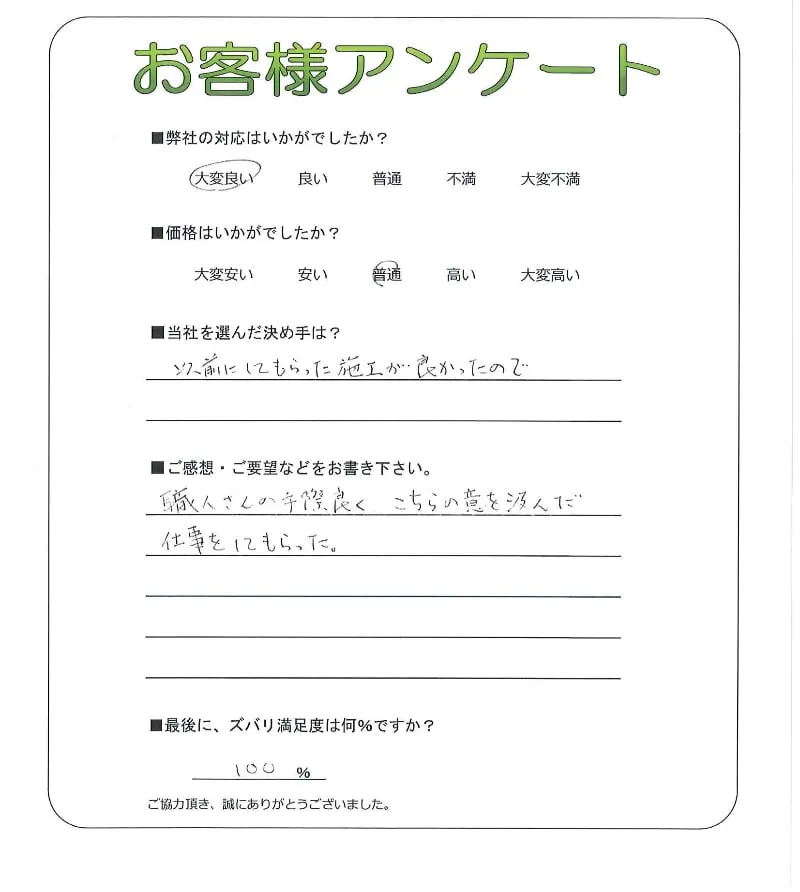 お客様アンケート
■弊社の対応はいかがでしたか？
大変良い 良い 普通 不満 大変不満
■価格はいかがでしたか？
大変安い 安い 普通 高い 大変高い
■当社を選んだ決め手は？
以前にしてもらった施工が良かったので
■ご感想・ご要望などをお書き下さい。
職人さんの手際良く こちらの意を汲んだ
仕事をしてもらった。
■最後に、ズバリ満足度は何%ですか？
100 %
ご協力頂き、誠にありがとうございました。